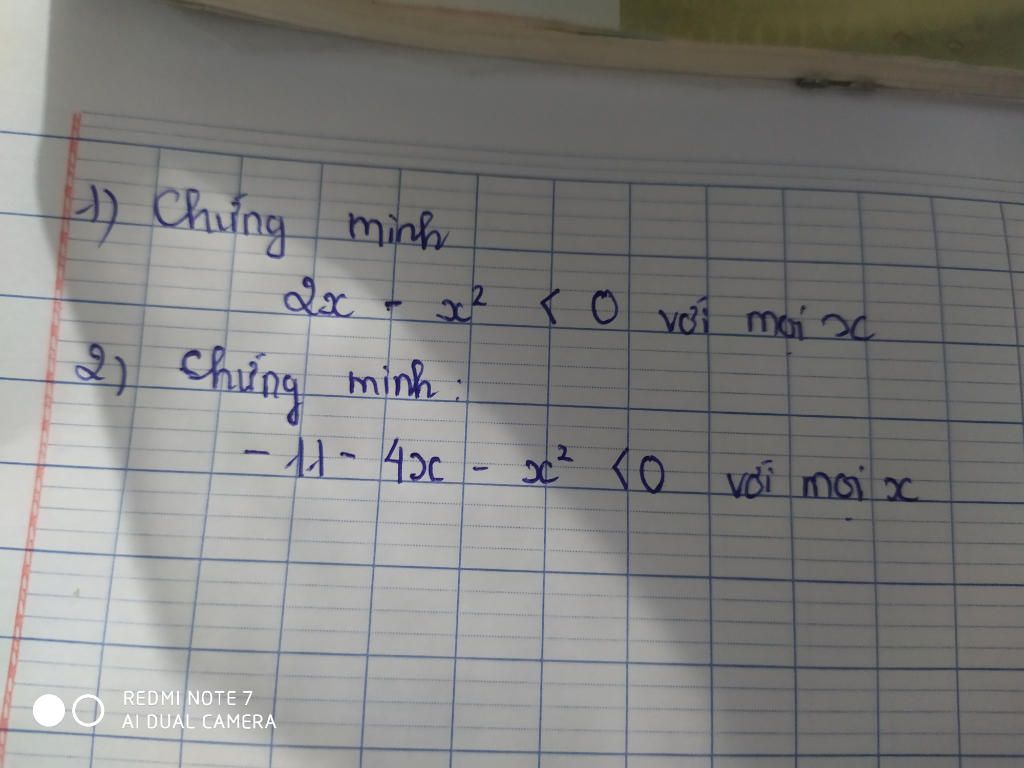 1) Chứng minh
2x - x² < 0 với mọi x
2) Chứng minh:
- 11 - 4x - x² < 0 với mọi x
REDMI NOTE 7
AI DUAL CAMERA